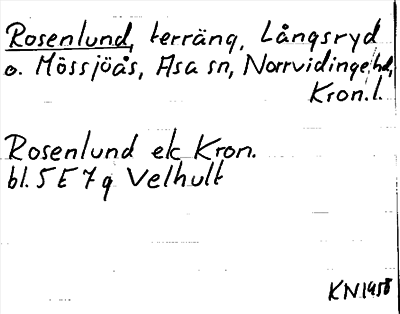 Rosenlund, terräng, Långsryd
o. Mössjöås, Asa sn, Norrvidinge hd,
Kron.l.
Rosenlund ek Kron.
bl. 5 E 7 g Velhult
KN 1958